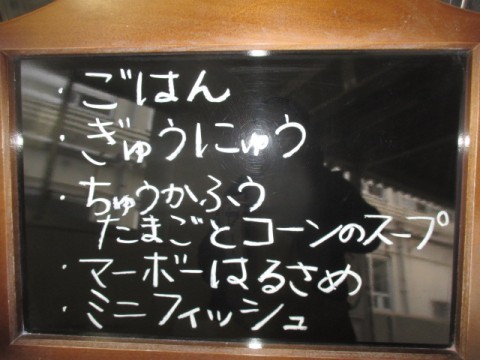 ・ごはん
・ぎゅうにゅう
・ちゅうかふう
たまごとコーンのスープ
・マーボーはるさめ
・ミニフィッシュ